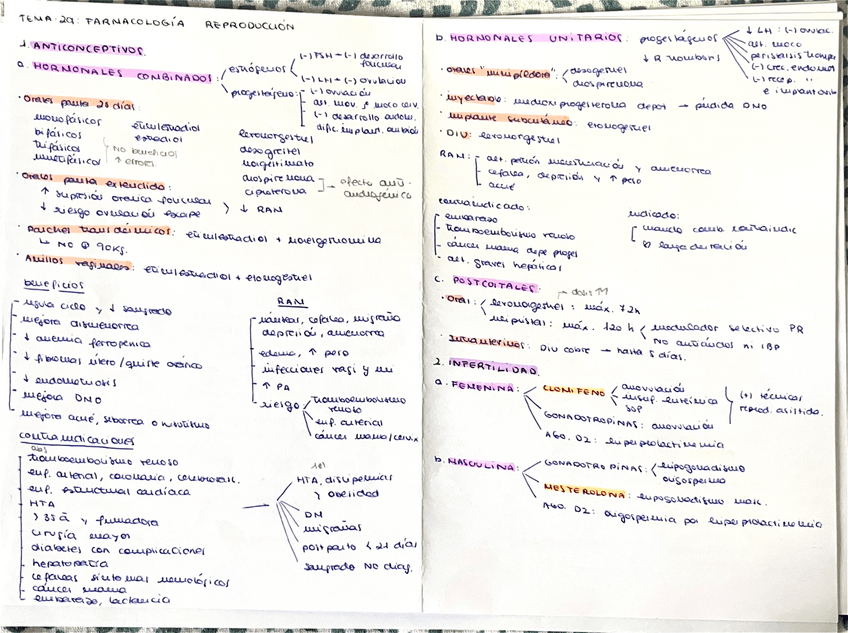 TEMA 29: FARMACOLOGÍA REPRODUCCIÓN
1. ANTICONCEPTIVOS.
a. HORMONALES COMBINADOS:
estrógenos
(-) FSH → (-) desarrollo folicular
(-) LH → (-) ovulación
progestágenos:
(-) ovulación
alt. mov. y moco cerv.
(-) desarrollo endom.
dific. implant. embrión
· Orales pauta 28 días:
monofásicos
bifásicos
trifásicos
multifásicos
No beneficios
↑ errores
etinilestradiol
estradiol
levonorgestrel
desogestrel
norgestimato
drospirenona
ciproterona
→ efecto anti-androgénico
· Orales pauta extendido:
↑ supresión ovárica folicular
↓ riesgo ovulación escape
↓ RAM
· Parches transdérmicos: etinilestradiol + norelgestromina
↳ NO @ 90kg.
· Anillos vaginales: etinilestradiol + etonogestrel
beneficios
- regula ciclo y ↓ sangrado
- mejora dismenorrea
- ↓ anemia ferropénica
- ↓ fibromas útero/quiste ovárico
- ↓ endometriosis
- mejora DMO
- mejora acné, seborrea o hirsutismo
RAM
- náuseas, cefalea, migraña
depresión, amenorrea
- edema, ↑ peso
- infecciones vagi y uri
- ↑ PA
- riesgo
tromboembolismo venoso
enf. arterial
cáncer mama/cervix
contraindicaciones
abs
- tromboembolismo venoso
- enf. arterial, coronaria, cerebrovasc.
- enf. estructural cardíaca
- HTA
- > 35a y fumadora
- cirugía mayor
- diabetes con complicaciones
- hepatopatía
- cefaleas síntomas neurológicos
- cáncer mama
- embarazo, lactancia
rel
HTA, dislipemias y obesidad
DM
migrañas
postparto < 21 días
sangrado NO diag.
b. HORMONALES UNITARIOS: progestágenos
↓ LH: (-) ovulac.
alt. moco
peristalsis trompa
(-) crec. endomet
(-) recep. "
e implantación
· orales "minipíldora":
desogestrel
drospirenona
· inyectable: medroxiprogesterona depot → pérdida DMO
· implante subcutáneo: etonogestrel
· DIU: levonorgestrel
RAM:
- alt. patrón menstruación y amenorrea
- cefalea, depresión y ↑ peso
- acné
contraindicado:
- embarazo
- tromboembolismo venoso
- cáncer mama depe proges
- alt. graves hepáticas
indicado:
- cuando comb contraindic
c. POSTCOITALES:
dosis ↑↑
· Oral:
levonorgestrel: máx. 72h
ulipristal: máx. 120h
modulador selectivo PR
NO antiácidos ni IBP
· Intrauterinos: DIU cobre → hasta 5 días.
2. INFERTILIDAD.
a. FEMENINA:
CLOMIFENO
anovulación
insuf. luteínica
SOP
(+) técnicas reprod. asistida.
GONADOTROPINAS: anovulación
AGO. D2: hiperprolactinemia
b. MASCULINA:
GONADOTROPINAS:
hipogonadismo
oligospermia
MESTEROLONA: hipogonadismo masc.
AGO. D2: oligospermia por hiperprolactinemia